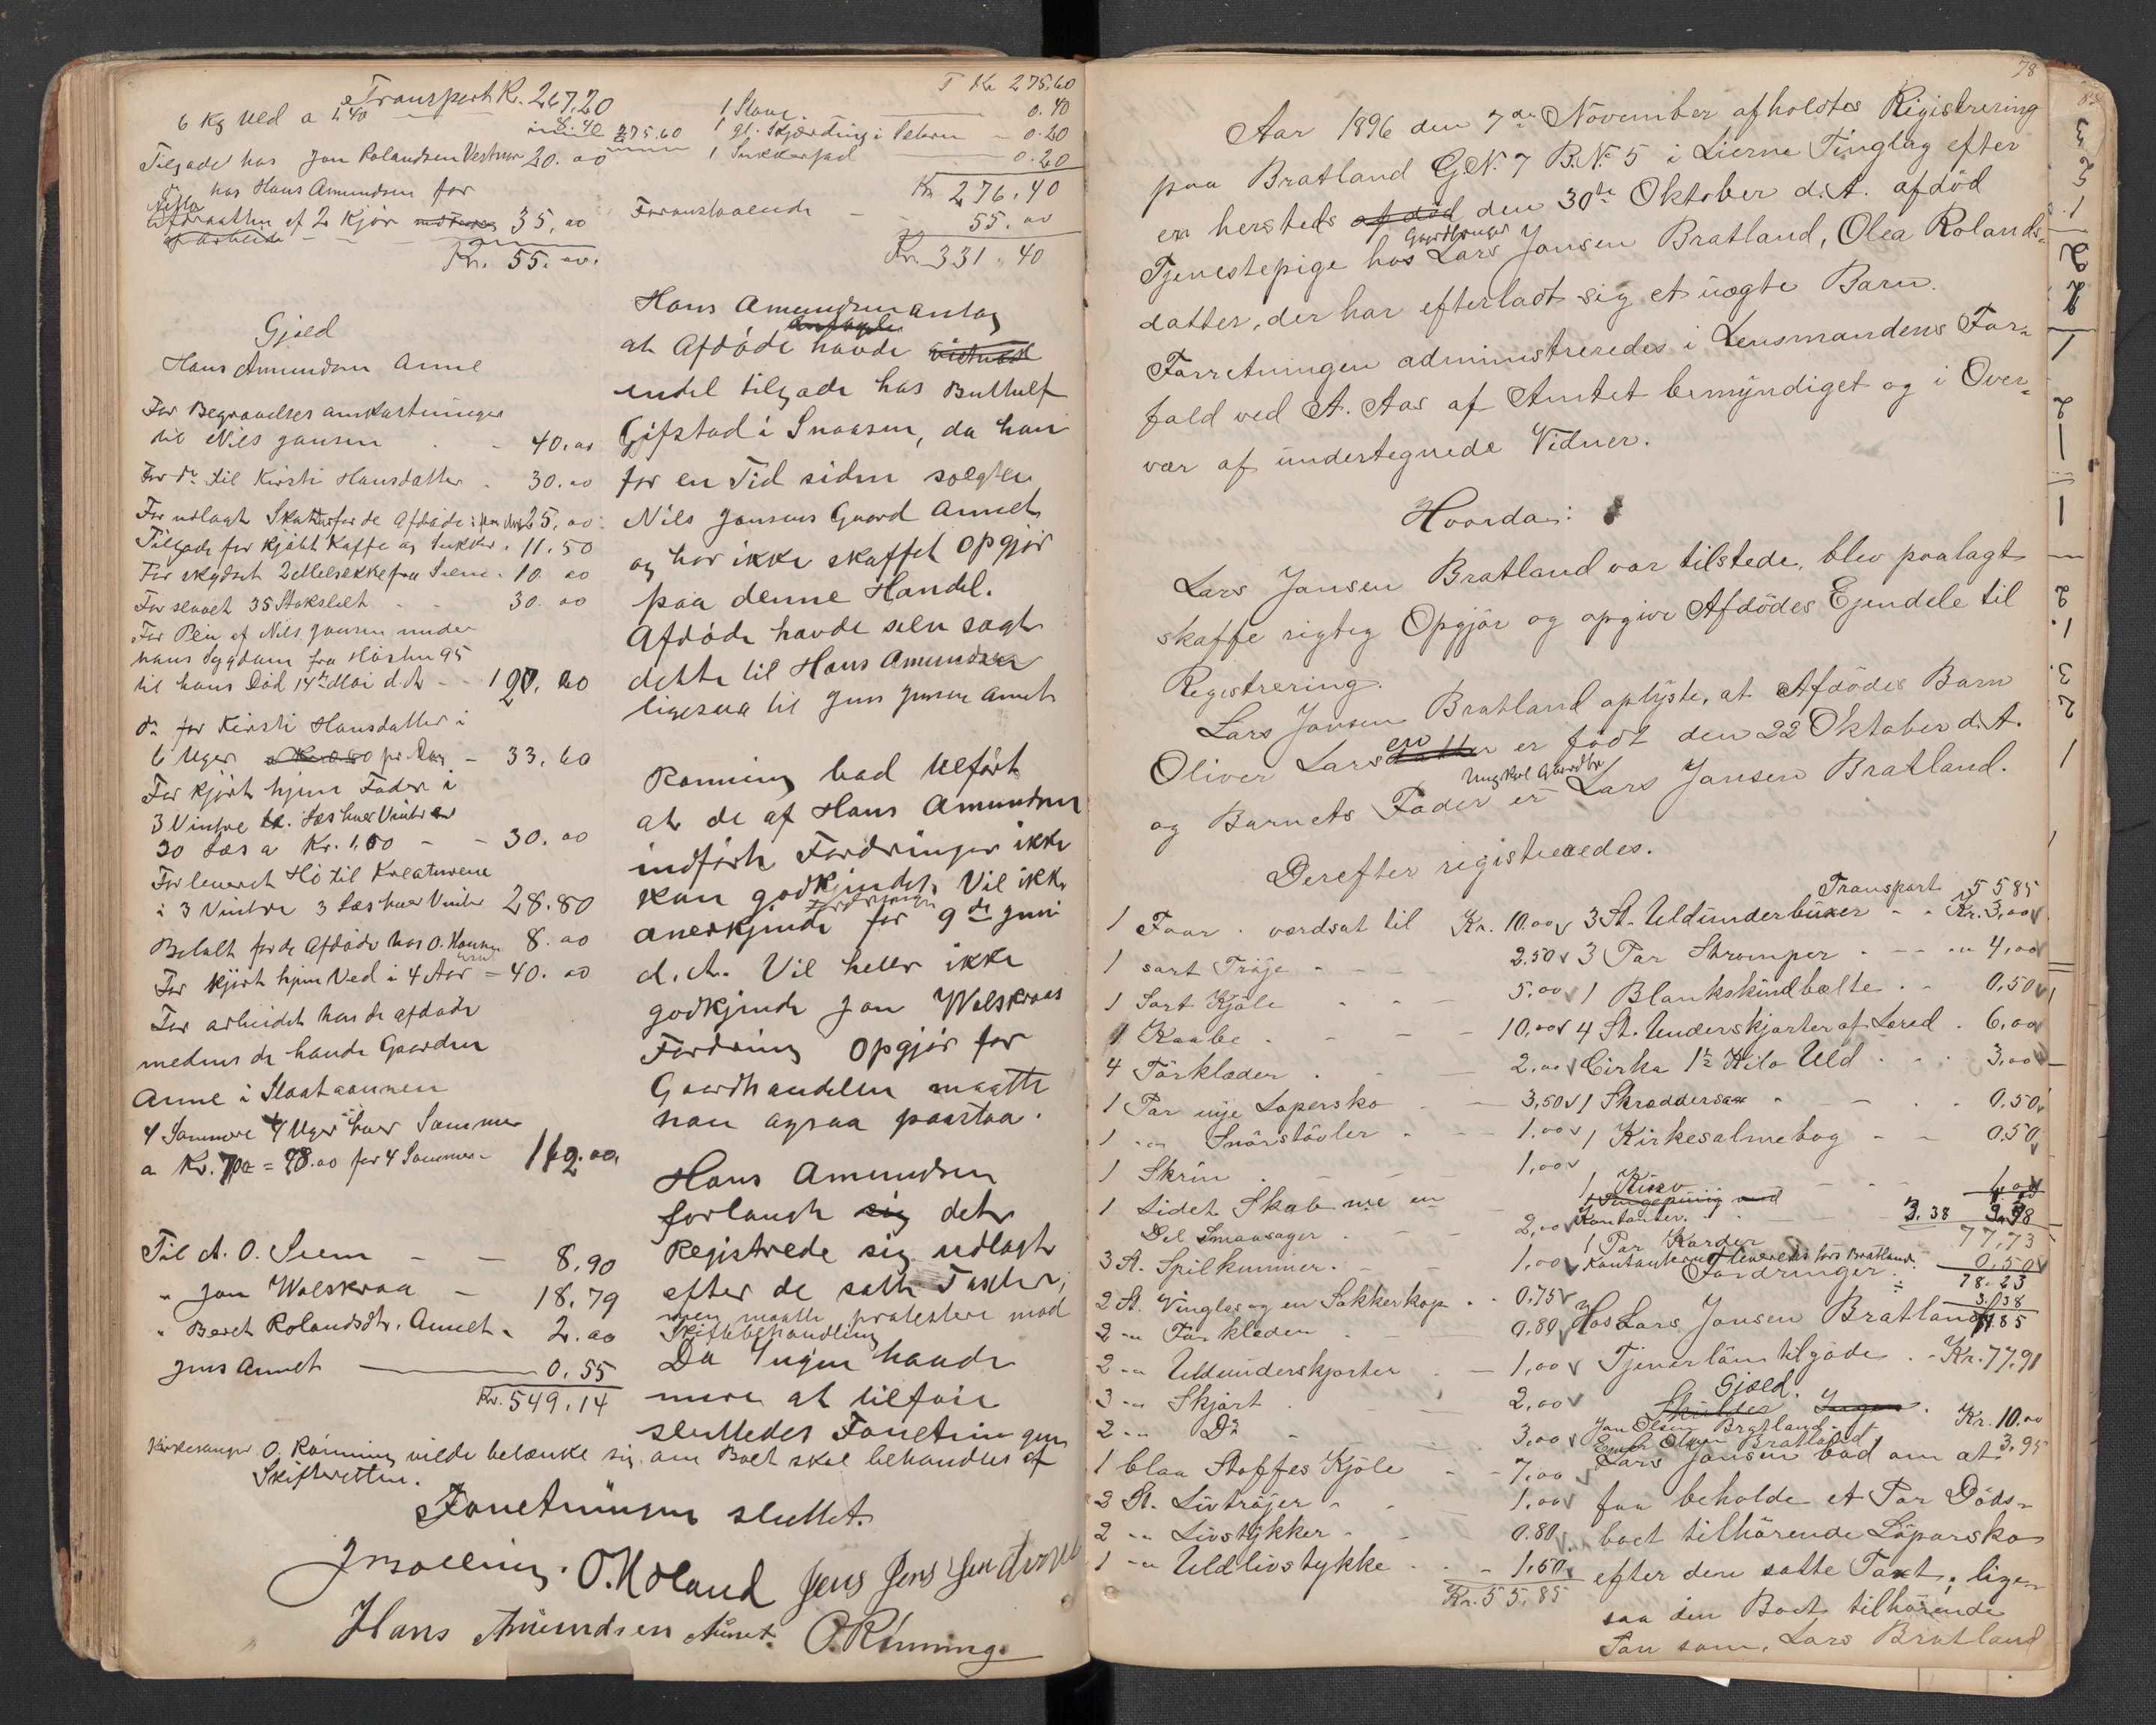 Transport K. 267.20
6 Kg Uld a 1,40 8.40 275.60
Tilgode hos Jon Rolandsen 20.00
Ditto hos Hans Amundsen for
af 2 Kjör 35.00
af Arbeide
Kr. 55.00.
Gjæld
Hans Amundsen Anne
For Begravelses
til Nils Jansen - 40.00
For do til Kirsti Hansdatter - 30.00
For udlagt Skatter for de Afdøde 25.00
Tilgode for kjöbt Kaffe og Sukker. 11.50
For skydset 2 Melsekke fra 10.00
For slaaet 35 Stakslæt - 30.00
For Plei af Nils Jansen under
hans Sygdom fra Hösten 95
til hans Död 14de Mai d.A. - -
do for Kirsti Hansdatter i
6 Uger pr. Dag - 33.60
For kjört hjem Foder i
3 Vintre Læs hver Vinter
30 Læs a Kr. 1.00 - - 30.00
For leveret Hö til Kreaturene
i 3 Vintre 3 Læs hver Vinter 28.80
Betalt for de Afdöde hos O. 8.00
For kjört hjem Ved i 4 Aar - 40.00
For arbeidet hos de afdøde
medens de havde Gaarden
Anne i Slaataannen
4 Sommere 4 Uger hver Sommer
a Kr. for 4 Sommer - 112.00
Til A. O. Sem - - 8,90
" Jon Welskraa - 18,79
" Beret Rolandsdtr. Annet " 2.00
Jens Annet 0.55
Kr. 549.14
T Kr 275.60
1 Stang 0.40
1 gl. Skjærding i Seteren - 0.20
1 Sukkerfad 0.20
Kr. 276.40
Foranstaaende - 55.00
Kr. 331.40
Hans Amundsen antog
antagde
at Afdöde havde
endel tilgode hos
Gifstad i Snaasen, da han
for en Tid siden solgte
Nils Jansens Gaard Annet
og har ikke skaffet Opgjör
paa denne Handel.
Afdöde havde selv sagt
dette til Hans Amundsen
ligesaa til Jens Jensen Annet
Ronning bad tilfört
at de af Hans Amundsen
indförte Fordringer ikke
kan godkjendes. Vil ikke
Fordringen
anerkjende för 9de Juni
d.A. Vil heller ikke
godkjende Jon Welskraas
Fordring Opgjör for
Gaardhandelen maatte
han ogsaa paastaa.
Hans Amundsen
forlangte sig det
Registrede sig udlagt
efter de satte Taxter,
men maatte protestere mod
Skiftebehandling
Da Ingen havde
mere at tilföie
sluttedes Forretningen
Kirkesanger O. Rönning vilde betænke sig om Boet skal behandles af
Skifteretten.
Forretningen sluttet.
O. Moland Jens Jensen
Hans Amundsen Annet. O. Rönning.
78
Aar 1896 den 7de November afholdtes Rigistrering
paa Bratland G.N. 7 B.N. 5 i Lierne Tinglag efter
en hersteds af død den 30te Oktober d.A. afdöd
Gaardbruger
Tjenestepige hos Lars Jonsen Bratland, Olea Rolands-
datter, der har efterladt sig et uægte Barn.
Forretningen administreredes i Lensmandens For-
fald ved A. Aas af Amtet bemyndiget og i Over-
vær af undertegnede Vidner.
Hvorda:
Lars Jonsen Bratland var tilstede, blev paalagt
skaffe rigteg Opgjör og opgive Afdödes Ejendele til
Registrering.
Lars Jonsen Bratland oplyste, at Afdödes Barn
Oliver Larsen datter er födt den 22 Oktober d.A.
Ungkarl Gaardbr
og Barnets Fader er Lars Jansen Bratland.
Derefter rigistreredes.
1 Faar. værdsat til Kr. 10.00
1 sort Tröje - 2.50
1 Sort Kjole - 5.00
1 Kaabe - 10.00
4 Törklæder - 2.00
1 Par nye Lopersko - 3,50
1 - " Snörstövler - 1.00
1 Skrin - 1,00
1 Lidet Skab me en
Del Smaasager - 2,00
3 St. Spilkummer. - 1,00
2 St. Vinglas og en Sokkerkop - 0.75
2 - " Törklæden 0,80
2 - " Uldunderskjorter - 1,00
3 - " Skjört 2,00
2 - " Do - 3,00
1 blaa Stoffes Kjole - 7,00
2 St. Livtröjer - 1.00
2 - " Livstykker - 0.80
1 - " Uldlivstykke - 1,50
Kr. 55,85
Transport 5585
3 St. Uldunderbuxer - Kr. 3,00
3 Par Strömper - 4,00
1 Blankskindbælte - 0,50
4 St. Underskjorter af Lærred . 6,00
Cirka 1½ Kilo Uld - 3,00
1 Skræddersax - 0.50
1 Kirkesalmebog - 0.50
1 Kiste
1 Pengepung med
Kontanter. 3.38
77,73
1 Par Karder 0.50
Kontanterne leveredes Lars Bratland. 78.23
Fordringer. 3.38
Hos Lars Jonsen Bratland
Tjenerlön tilgode . - Kr. 77,91
Gjæld.
Skulder Ingen.
Jon Olsen Bratland Kr. 10.00
Olsen Bratland 3.95
Lars Jonsen bad om at
faa beholde et Par Döds-
boet tilhörende Löparsko
efter den satte Taxt, lige-
saa den Boet tilhörende
Sau som, Lars Bratland